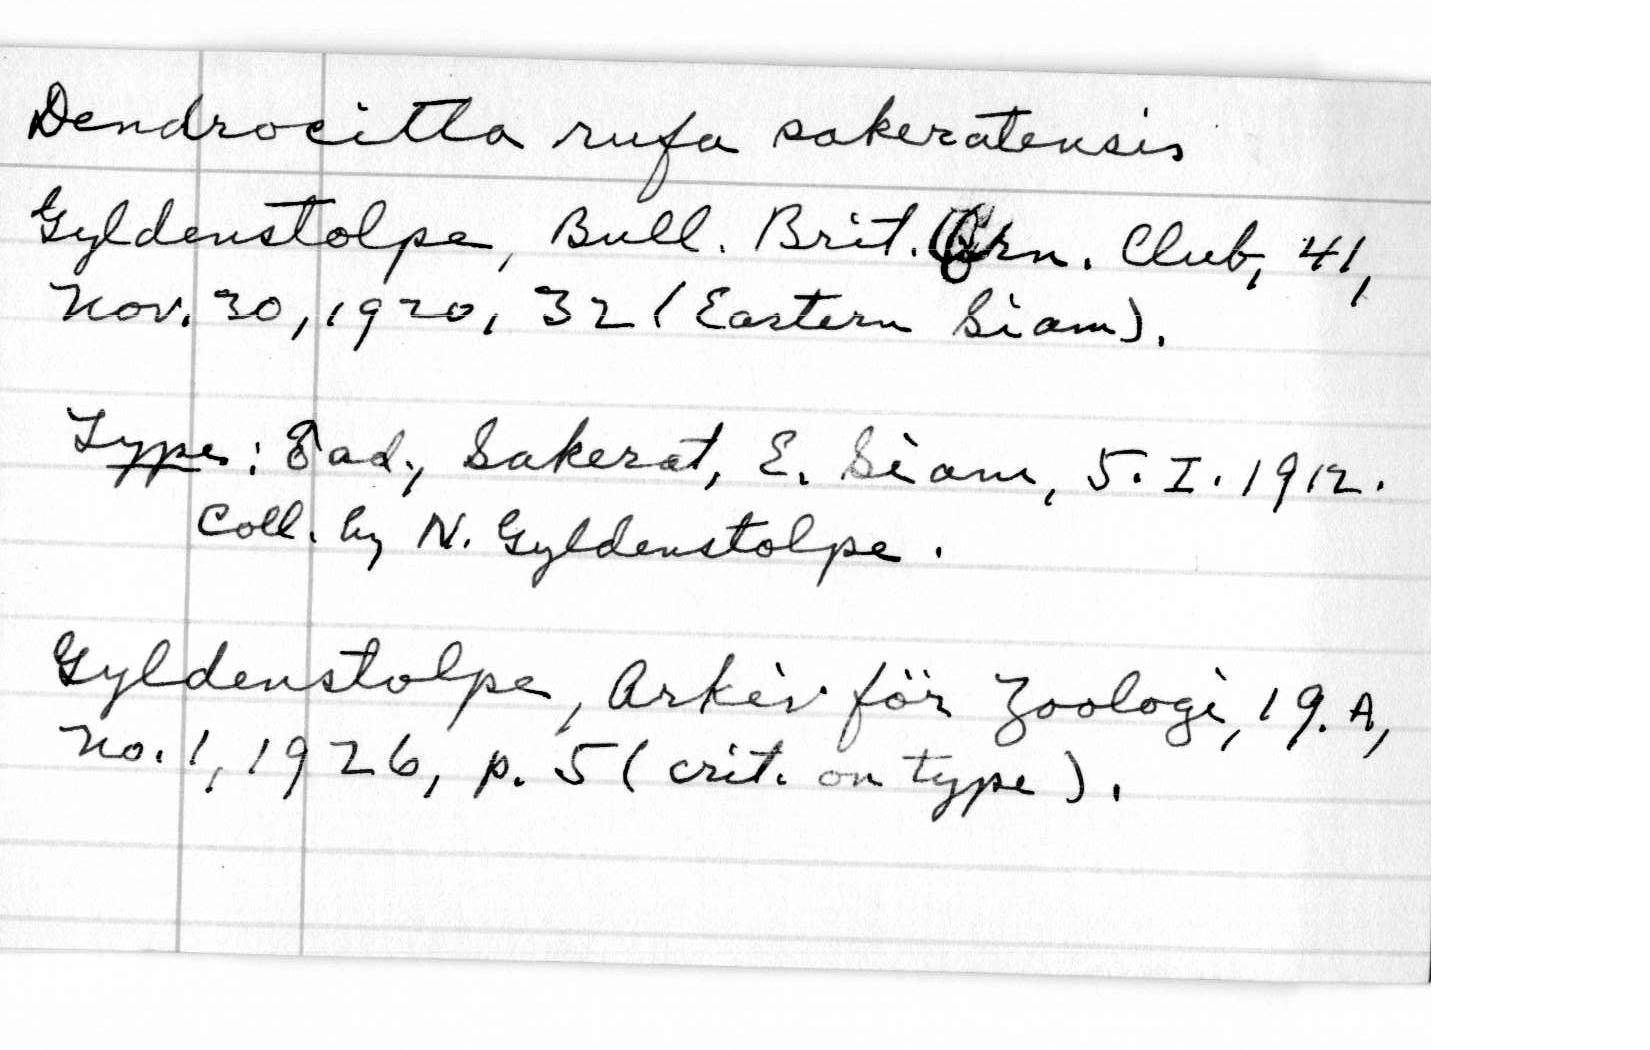 Dendrocitta rufa sakeratensis
Gyldenstolpe, Bull. Brit. Orn. Club, 41,
Nov. 30, 1920, 32 (Eastern Siam).
Type: ♂ ad., Sakerat, E. Siam, 5. I. 1912.
Coll. by N. Gyldenstolpe.
Gyldenstolpe, Arkiv för Zoologi, 19. A,
No. 1, 1926, p. 5 (crit. on type).